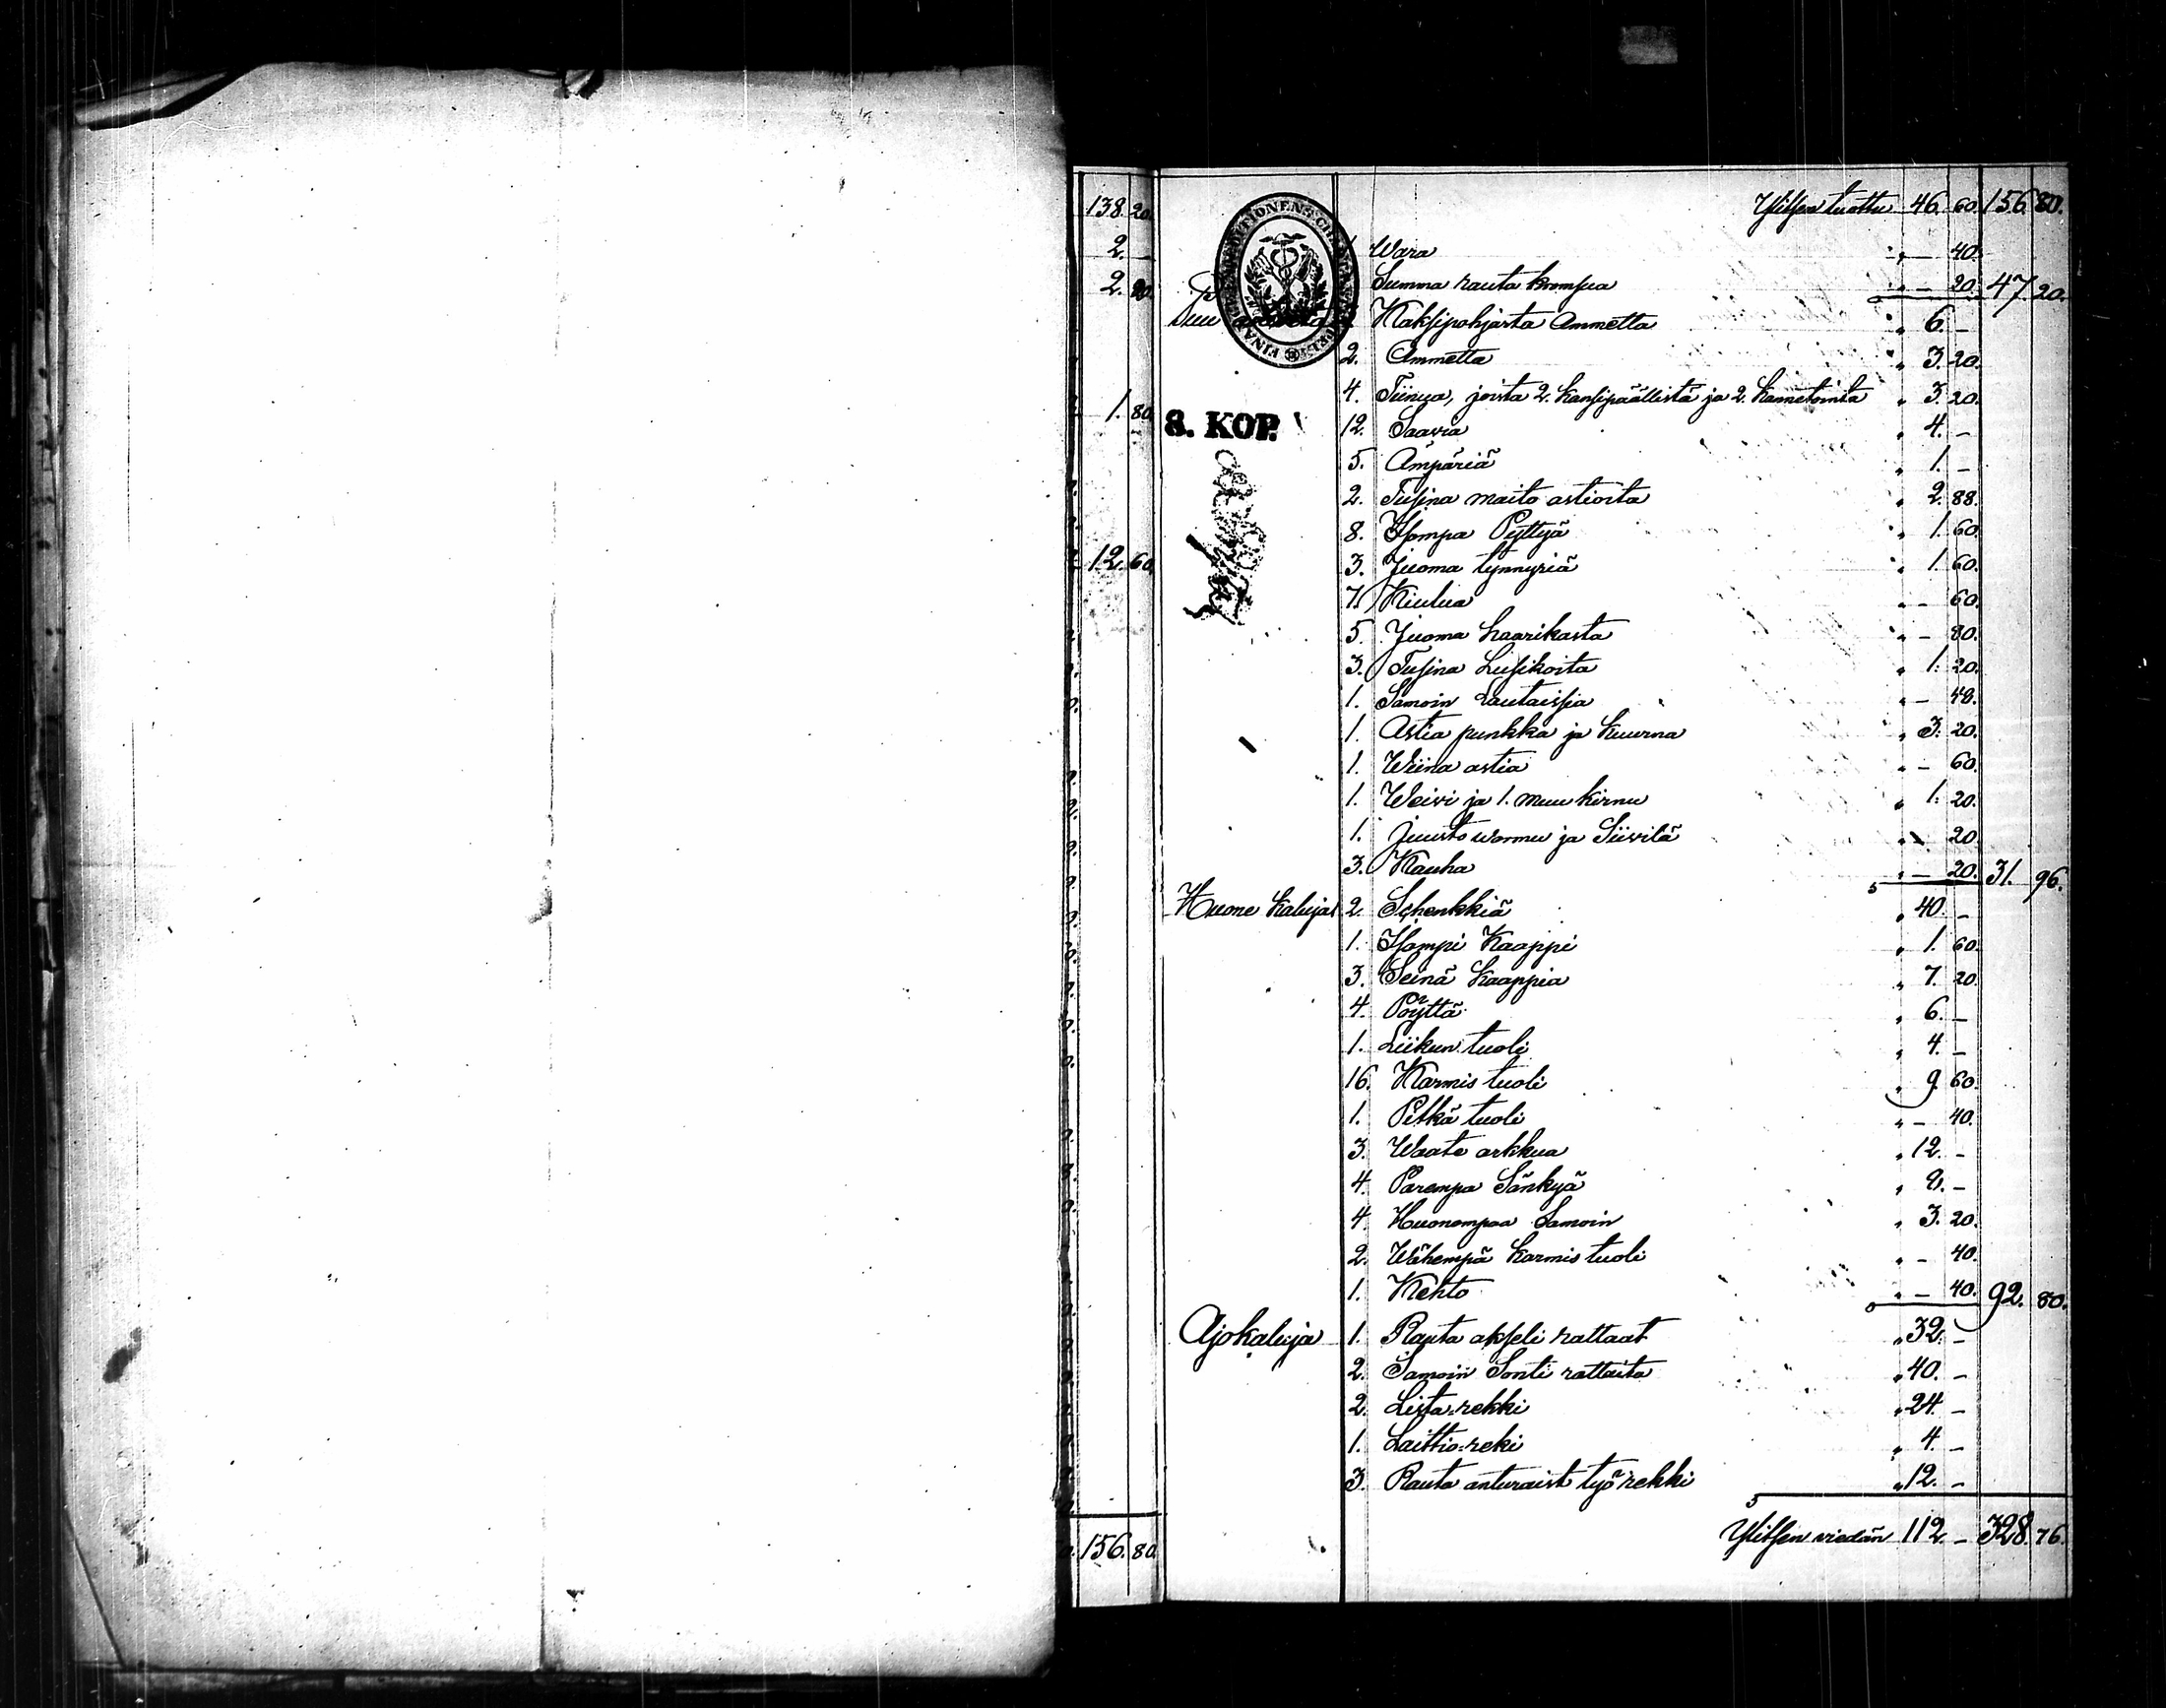 138. 20.
2. –
2. 20.
1. 80.
12. 60.
156. 80.
Ylitsen tuottu 46. 60. 156. 80.
1. Wara „ – 40.
Summa rauta kromsua „ – 20. 47 20.
Puu astioita Kaksipohjasta Ammetta „ 6. –
2. Ammetta „ 3. 20.
4. Tiinua, joista 2. kansipäällistä ja 2. kannetointa „ 3. 20.
8. KOP. 12. Saavia „ 4. –
5. Ämpäriä „ 1. –
2. Tusina maito astioita „ 2. 88.
8. Isompa Pyttyä „ 1. 60.
3. Juoma tynnyriä „ 1. 60.
7. Kiulua „ – 60.
5. Juoma haarikasta „ – 80.
3. Tusina Lusikoita „ 1. 20.
1. Samoin Lautaissia „ – 48.
1. Astia punkka ja kuurna „ 3. 20.
1. Wiina astia „ – 60.
1. Weivi ja 1. muu kirnu „ 1. 20.
1. Juusto wormu ja Siivilä „ – 20
3. Kauha „ – 20. 31. 96.
Huone kaluja 2. Schenkkiä „ 40. –
1. Isompi Kaappi „ 1. 60.
3. Seinä kaappia „ 7. 20.
4. Pöyttä „ 6. –
1. Liikun tuoli „ 4. –
16. Karmis tuoli „ 9 60.
1. Pitkä tuoli „ – 40.
3. Waate arkkua „ 12. –
4. Parempa Sänkyä „ 8. –
4. Huonompaa Samoin „ 3. 20.
2. Wähempä karmis tuoli „ – 40.
1. Kehto „ – 40. 92. 80.
Ajokaluja 1. Rauta akseli rattaat „ 32. –
2. Samoin Sonti rattaita „ 40. –
2. Lista-rekki „ 24. –
1. Laittio-reki „ 4. –
3. Rauta anturaist työ rekki „ 12. –
Ylitsen viedän 112. – 328. 76.